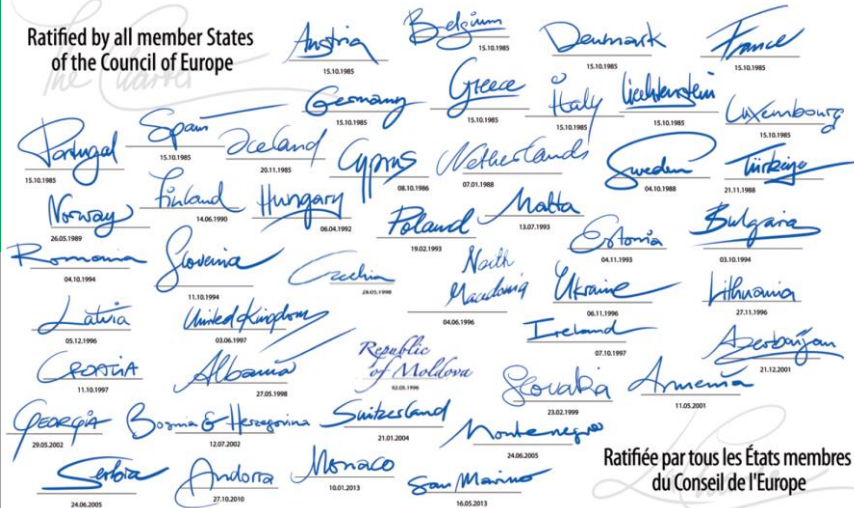 Ratified by all member States
of the Council of Europe
The Charter
Austria
15.10.1985
Belgium
15.10.1985
Denmark
15.10.1985
France
15.10.1985
Germany
15.10.1985
Greece
15.10.1985
Italy
15.10.1985
Liechtenstein
15.10.1985
Luxembourg
15.10.1985
Portugal
15.10.1985
Spain
15.10.1985
Iceland
20.11.1985
Cyprus
08.10.1986
Netherlands
07.01.1988
Sweden
04.10.1988
Türkiye
21.11.1988
Norway
26.05.1989
Finland
14.06.1990
Hungary
06.04.1992
Poland
19.02.1993
Malta
13.07.1993
Estonia
04.11.1993
Bulgaria
03.10.1994
Romania
04.10.1994
Slovenia
11.10.1994
Czechia
28.05.1998
North
Macedonia
04.06.1996
Ukraine
06.11.1996
Lithuania
27.11.1996
Latvia
05.12.1996
United Kingdom
03.06.1997
Republic
of Moldova
Ireland
07.10.1997
Azerbaijan
21.12.2001
CROATIA
11.10.1997
Albania
27.05.1998
Slovakia
23.02.1999
Armenia
11.05.2001
GEORGIA
29.05.2002
Bosnia & Herzegovina
12.07.2002
Switzerland
21.01.2004
Montenegro
24.06.2005
Serbia
24.06.2005
Andorra
27.10.2010
Monaco
10.01.2013
San Marino
16.05.2013
Ratifiée par tous les États membres
du Conseil de l'Europe